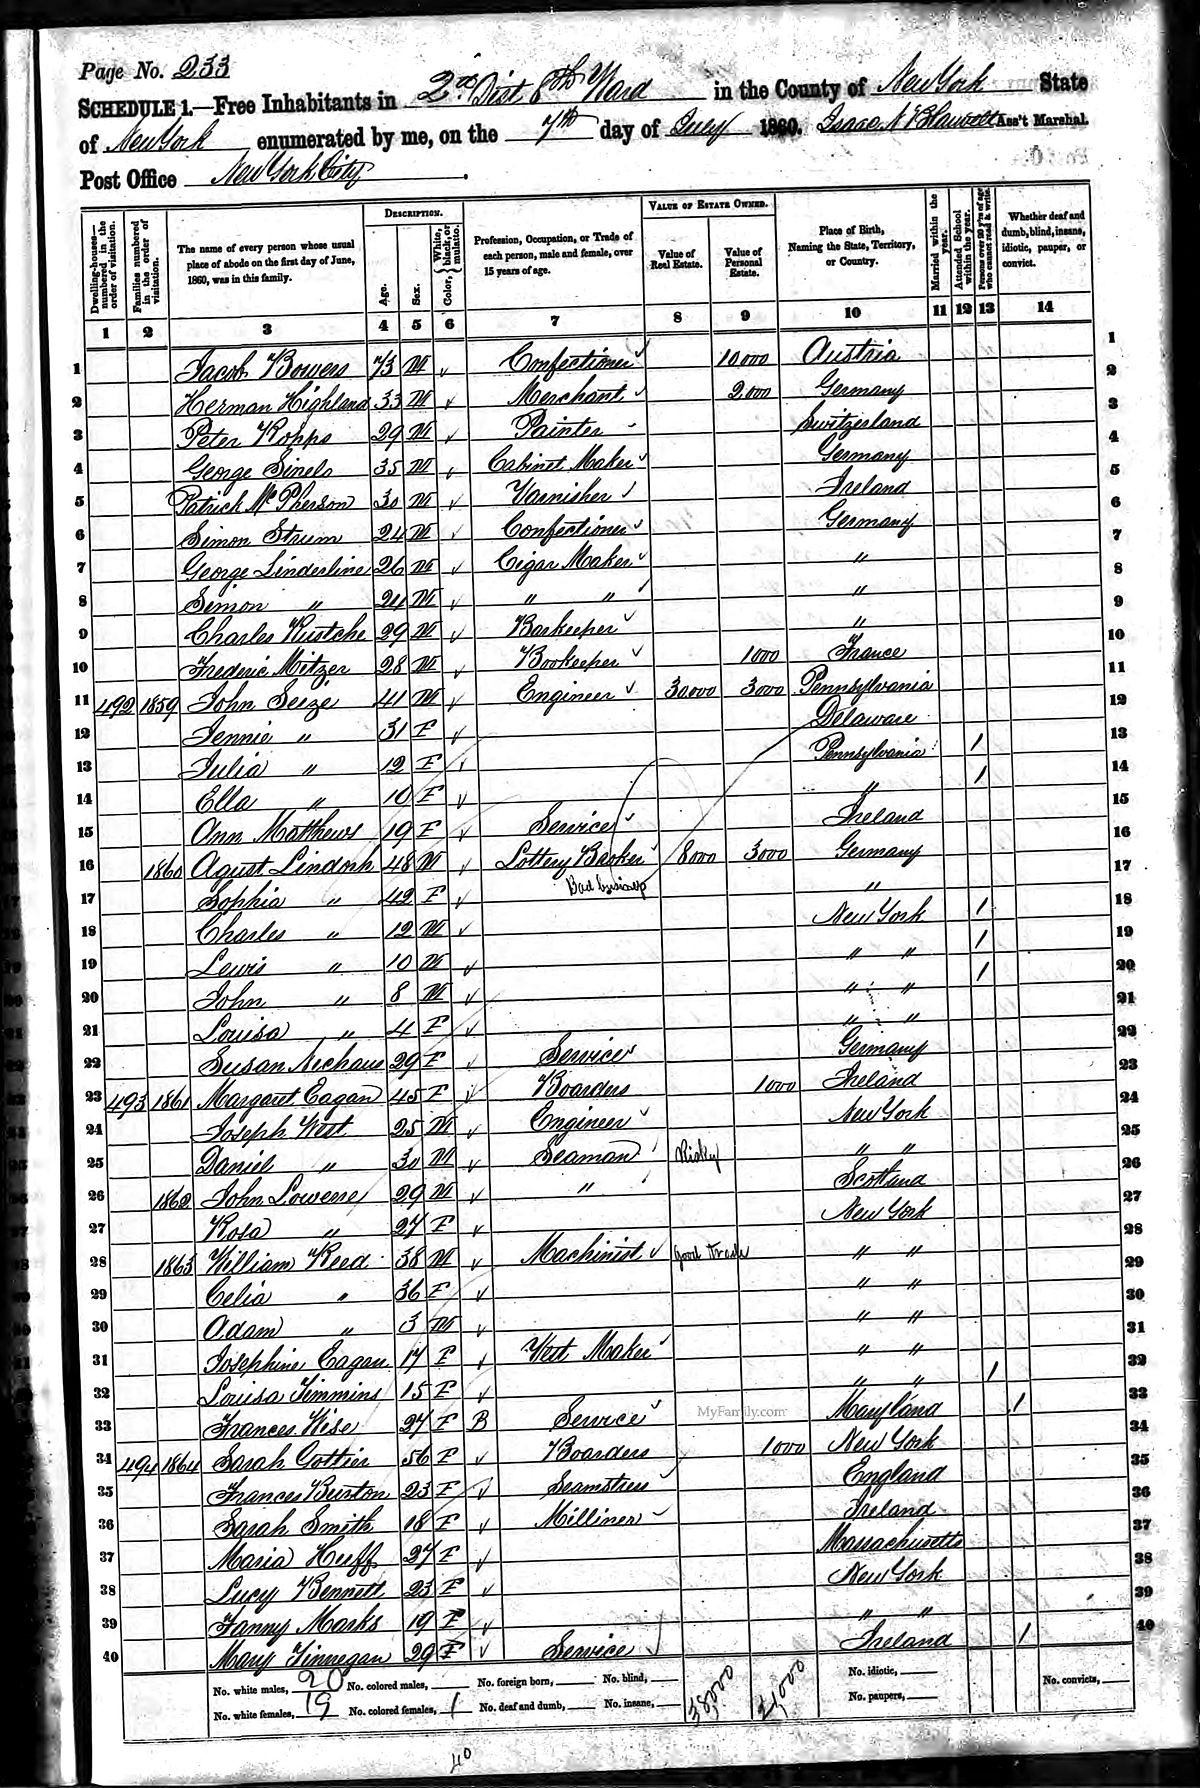 Page No. 233
SCHEDULE 1.—Free Inhabitants in 2nd Dist 8th Ward in the County of New York State
of New York enumerated by me, on the 7th day of July 1860. Isaac N Ass't Marshal.
Post Office New York City.
DESCRIPTION. VALUE OF ESTATE OWNED.
Dwelling-houses—numbered in the order of visitation. Families numbered in the order of visitation. The name of every person whose usual place of abode on the first day of June, 1860, was in this family. Age. Sex. Color, White, black, or mulatto. Profession, Occupation, or Trade of each person, male and female, over 15 years of age. Value of Real Estate. Value of Personal Estate. Place of Birth, Naming the State, Territory, or Country. Married within the year. Attended School within the year. Persons over 20 y'rs of age who cannot read & write. Whether deaf and dumb, blind, insane, idiotic, pauper, or convict.
1 2 3 4 5 6 7 8 9 10 11 12 13 14
1 Jacob Bowers 73 M Confectioner 10,000 Austria 1
2 Herman Highland 33 M Merchant 2,000 Germany 2
3 Peter Kopps 29 M Painter Switzerland 3
4 George Sinels 35 M Cabinet Maker Germany 4
5 Patrick McPherson 30 M Varnisher Ireland 5
6 Simon Strum 24 M Confectioner Germany 6
7 George Linderline 26 M Cigar Maker " 7
8 Simon " 24 M " " " 8
9 Charles Kustche 29 M Barkeeper " 9
10 Frederic Mitzer 28 M Bookeeper 1000 France 10
11 492 1859 John Seize 41 M Engineer 30,000 3000 Pennsylvania 11
12 Jennie " 31 F Delaware 12
13 Julia " 12 F Pennsylvania 1 13
14 Ella " 10 F " 1 14
15 Ann Matthews 19 F Service Ireland 15
16 1860 Agust Lindorh 48 M Lottery Broker 8000 3000 Germany 16
17 Sophia " 42 F Bad business " 17
18 Charles " 12 M New York 1 18
19 Lewis " 10 M " " 1 19
20 John " 8 M " " 1 20
21 Louisa " 4 F " " 21
22 Susan Nechaus 29 F Service Germany 22
23 493 1861 Margaret Eagan 45 F Boarders 1000 Ireland 23
24 Joseph West 25 M Engineer New York 24
25 Daniel " 30 M Seaman Risky " " 25
26 1862 John Lowerre 29 M " Scotland 26
27 Rosa " 27 F New York 27
28 1863 William Reed 38 M Machinist good trade " " 28
29 Celia " 36 F " " 29
30 Adam " 3 M " " 30
31 Josephine Eagan 17 F Vest Maker " " 31
32 Louisa Timmins 15 F " " 1 32
33 Frances Wise 27 F B Service Maryland 1 33
34 494 1864 Sarah Gottier 56 F Boarders 1000 New York 34
35 Frances Burton 23 F Seamstress England 35
36 Sarah Smith 18 F Milliner Ireland 36
37 Maria Huff 27 F Massachusetts 37
38 Lucy Bennett 23 F New York 38
39 Fanny Marks 19 F " " 39
40 Mary Finnegan 29 F Service Ireland 1 40
MyFamily.com
No. white males, 20 No. colored males, No. foreign born, No. blind, 38,000 21,000 No. idiotic, No. convicts,
No. white females, 19 No. colored females, 1 No. deaf and dumb, No. insane, No. paupers,
40